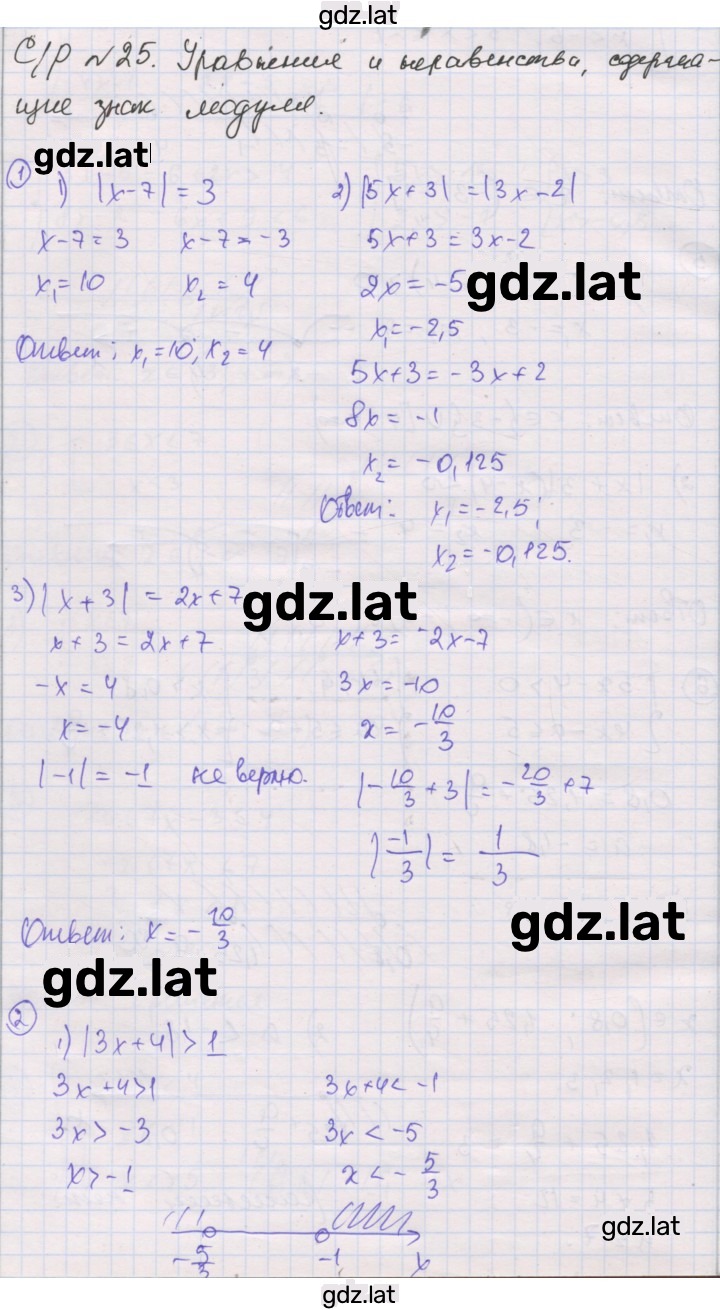 gdz.lat
С/Р №25. Уравнения и неравенства, содержа-
щие знак модуля.
gdz.lat
① 1) |x-7| = 3
x-7 = 3 x-7 = -3
x₁ = 10 x₂ = 4
Ответ: x₁ = 10; x₂ = 4
2) |5x+3| = |3x-2|
5x+3 = 3x-2
2x = -5
gdz.lat
x₁ = -2,5
5x+3 = -3x+2
8x = -1
x₂ = -0,125
Ответ: x₁ = -2,5;
x₂ = -0,125.
3) |x+3| = 2x+7
gdz.lat
x+3 = 2x+7 x+3 = -2x-7
-x = 4 3x = -10
x = -4 x = -10/3
|-1| = -1 не верно. |-10/3 + 3| = -20/3 + 7
|-1/3| = 1/3
Ответ: x = -10/3
gdz.lat
gdz.lat
② 1) |3x+4| > 1
3x+4 > 1 3x+4 < -1
3x > -3 3x < -5
x > -1 x < -5/3
-5/3 -1 x
gdz.lat
gdz.lat